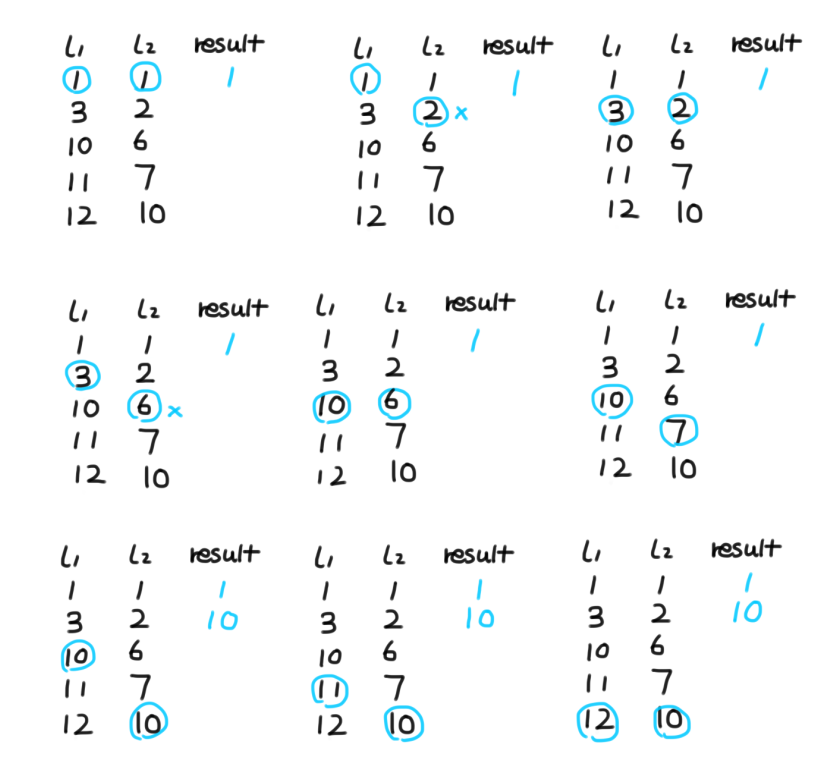 l₁ l₂ result
1 1 1
3 2
10 6
11 7
12 10
l₁ l₂ result
1 1 1
3 2 x
10 6
11 7
12 10
l₁ l₂ result
1 1 1
3 2
10 6
11 7
12 10
l₁ l₂ result
1 1 1
3 2
10 6 x
11 7
12 10
l₁ l₂ result
1 1 1
3 2
10 6
11 7
12 10
l₁ l₂ result
1 1 1
3 2
10 6
11 7
12 10
l₁ l₂ result
1 1 1
3 2 10
10 6
11 7
12 10
l₁ l₂ result
1 1 1
3 2 10
10 6
11 7
12 10
l₁ l₂ result
1 1 1
3 2 10
10 6
11 7
12 10